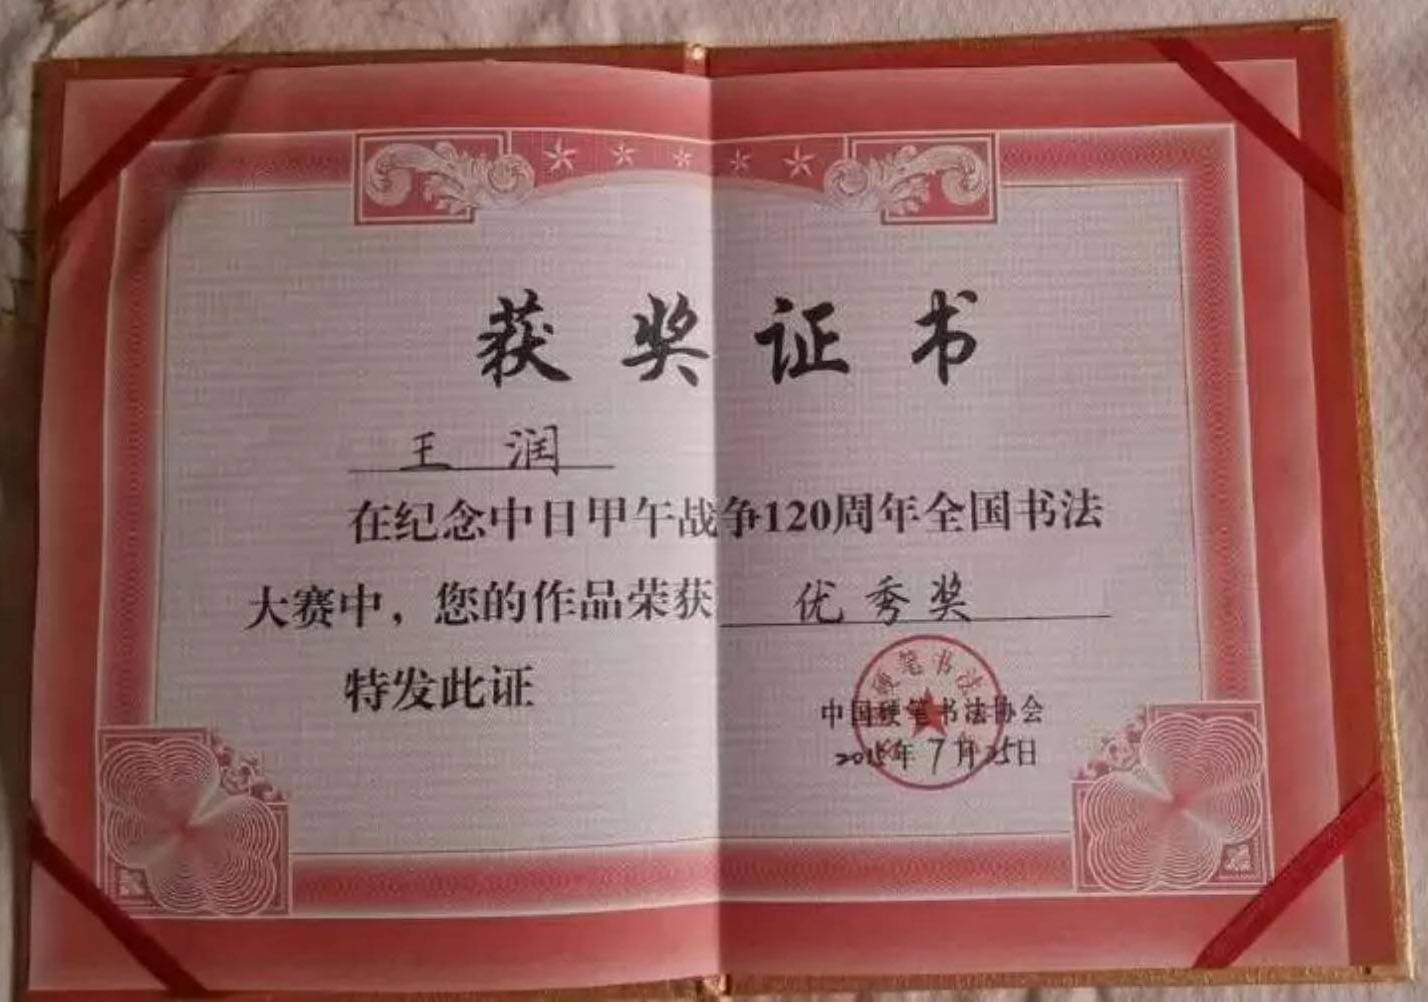 获奖证书
王润
在纪念中日甲午战争120周年全国书法
大赛中，您的作品荣获 优秀奖
特发此证
硬笔书法
中国硬笔书法协会
2015年7月25日